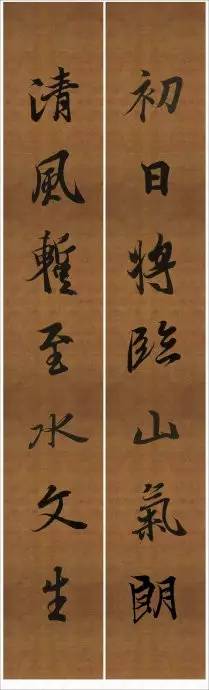 初日將臨山氣朗
清風暫至水文生